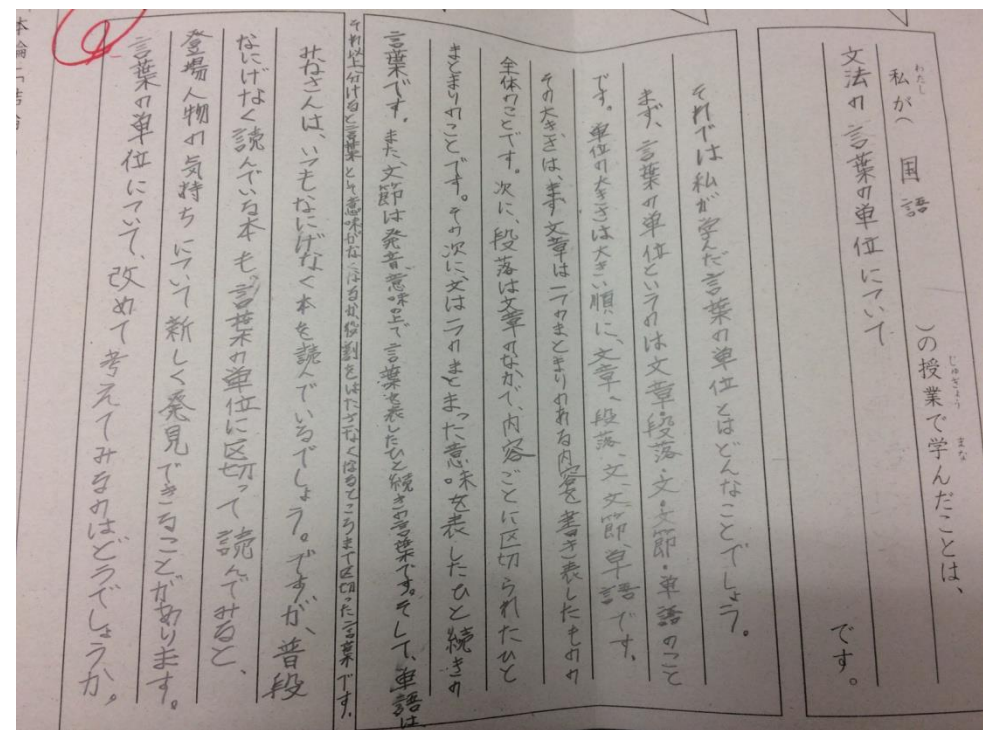 私が(国語)の授業で学んだことは、
わたし
じゅぎょう
まな
文法の言葉の単位について
です。
それでは私が学んだ言葉の単位とはどんなことでしょう。
まず、言葉の単位というのは文章・段落・文・文節・単語のこと
です。単位の大きさは大きい順に、文章、段落、文、文節、単語です。
その大きさは、まず文章は一つのまとまりのある内容を書き表したものの
全体のことです。次に、段落は文章のなかで、内容ごとに区切られたひと
まとまりのことです。その次に、文は一つのまとまった意味を表したひと続きの
言葉です。また、文節は発音、意味の上で言葉を表したひと続きの言葉です。そして、単語は
それ以上分けると言葉として意味がなくなるか、役割をはたさなくなるところまで区切った言葉です。
みなさんは、いつもなにげなく本を読んでいるでしょう。ですが、普段
なにげなく読んでいる本も、言葉の単位に区切って読んでみると、
登場人物の気持ちについて新しく発見できることがあります。
言葉の単位について、改めて考えてみるのはどうでしょうか。